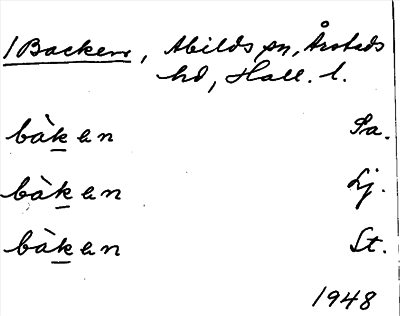 /Backen, Abilds sn, Årstads
hd, Hall. l.
bàkan Sa.
bàkan Lj.
bàkan St.
1948